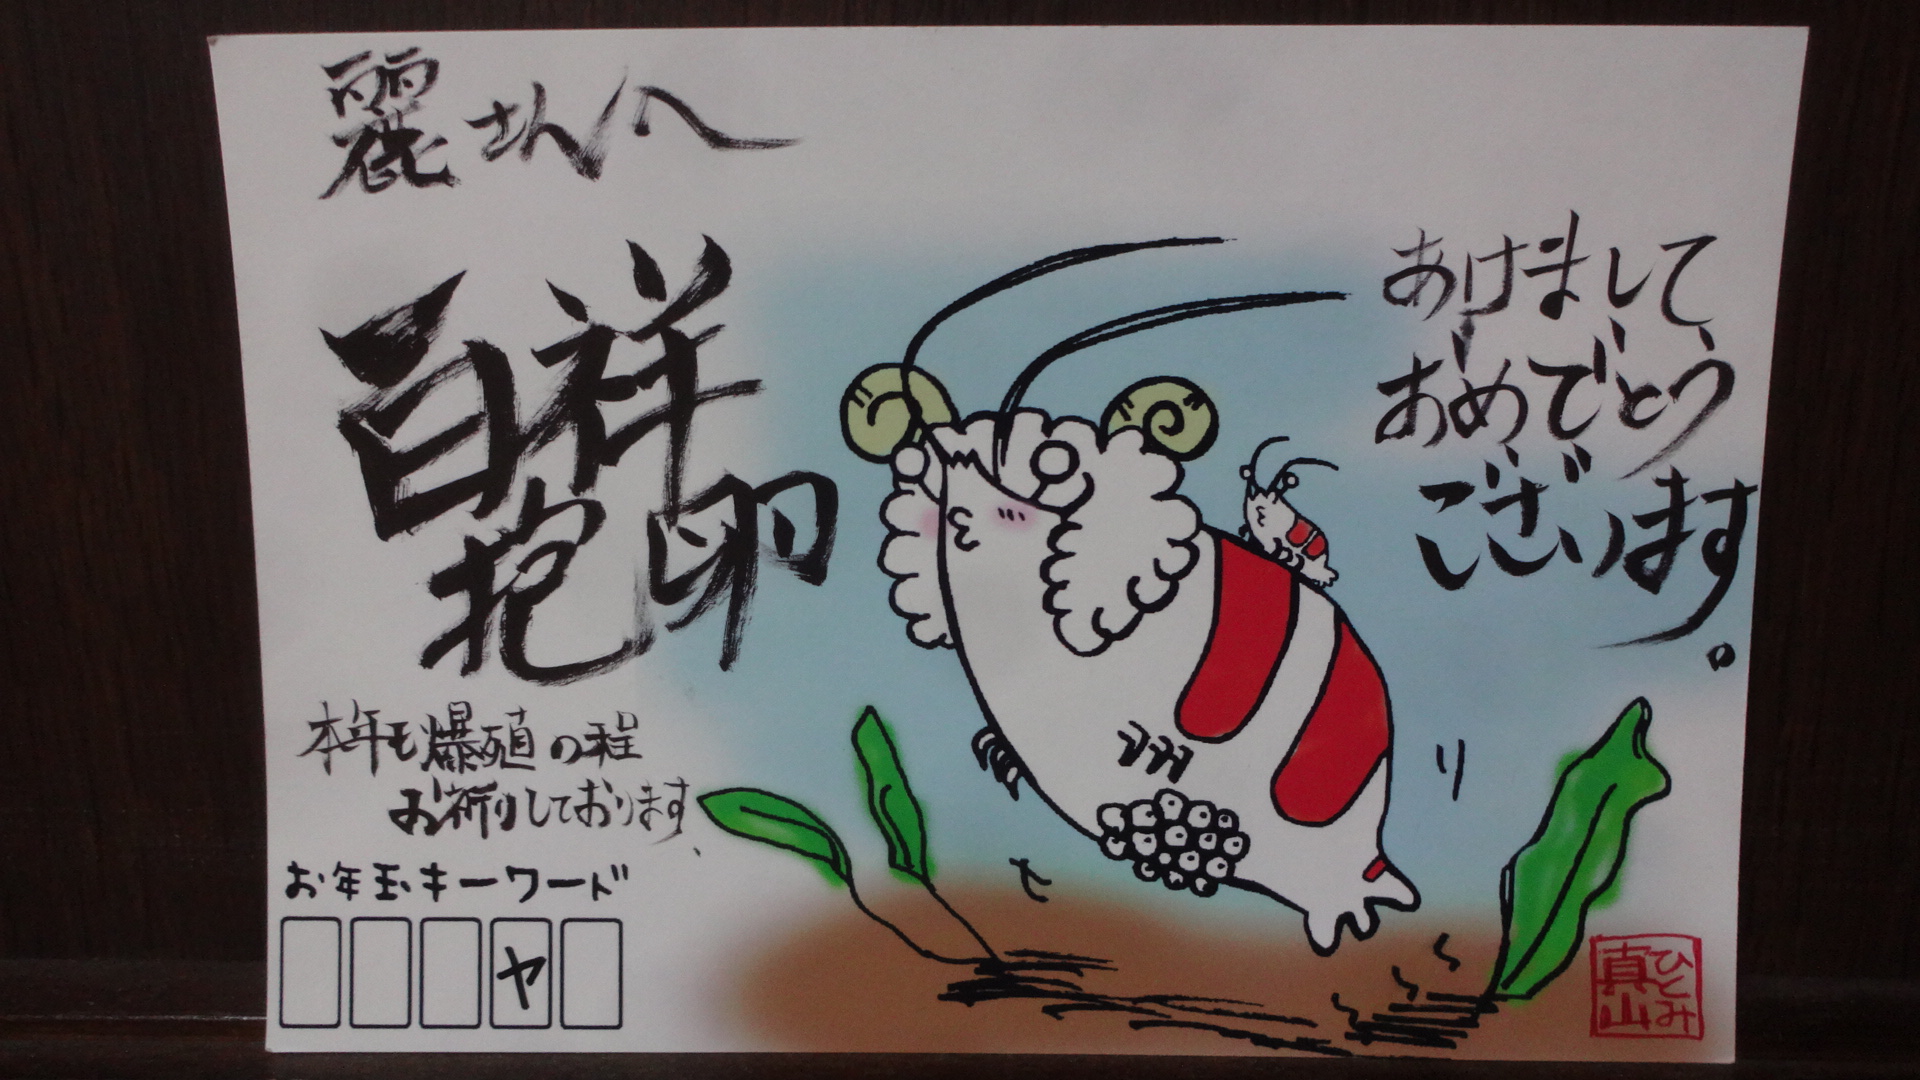 麗さんへ
百祥
抱卵
あけまして、
おめでとう
ございます。
本年も爆殖の程
お祈りしております、
お年玉キーワード
ヤ
ひとみ
真山